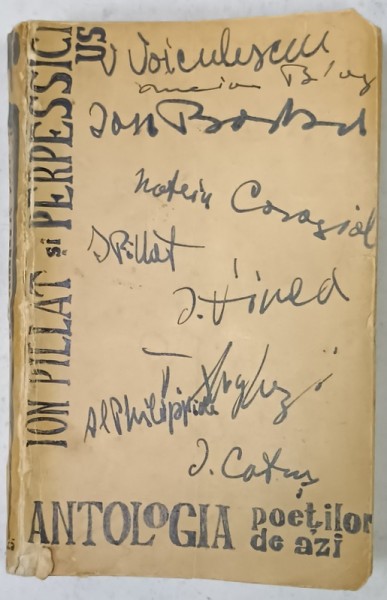 ION PILLAT și PERPESSICI
US
V Voiculescu
Lucian Blag
Ion Barbu
Mateiu Caragial
I Pillat
I. Vinea
T. Arghezi
Al Philippide
I. Cotruș
ANTOLOGIA poeților
de azi